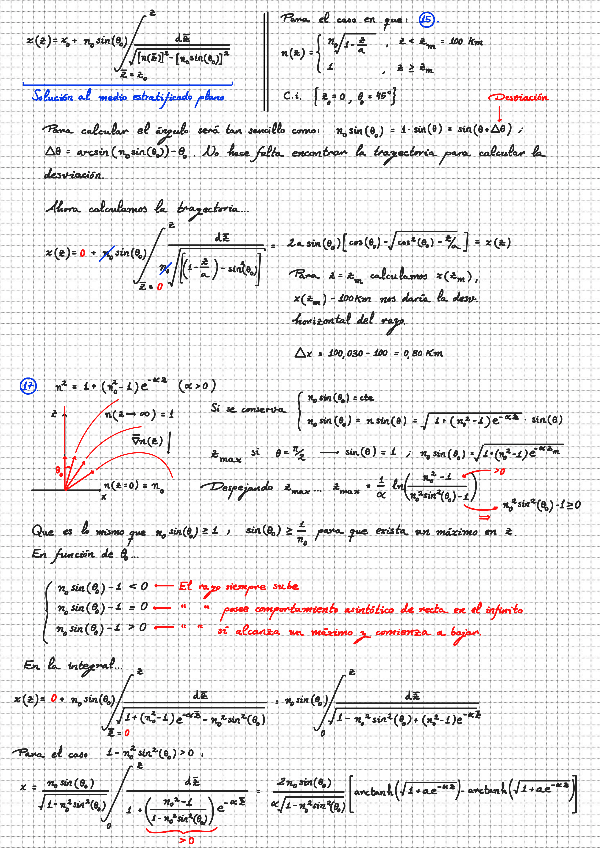 x(z) = x₀ + n₀ sin(θ₀) ∫_{z̄=z₀}^{z} dz̄ / √([n(z̄)]² - [n₀ sin(θ₀)]²)
Solución al medio estratificado plano
Para el caso en que: 15.
n(z) = { n₀√(1 - z/a) , z < z_m = 100 Km
1 , z ≥ z_m
C.i. {z₀ = 0, θ₀ = 45°}
Desviación
Para calcular el ángulo será tan sencillo como: n₀ sin(θ₀) = 1·sin(θ) = sin(θ+Δθ) ;
Δθ = arcsin(n₀ sin(θ₀)) - θ₀. No hace falta encontrar la trayectoria para calcular la
desviación.
Ahora calculamos la trayectoria...
x(z) = 0 + n₀ sin(θ₀) ∫_{z̄=0}^{z} dz̄ / n₀√[(1 - z̄/a) - sin²(θ₀)] = 2a sin(θ₀)[cos(θ₀) - √(cos²(θ₀) - z/a)] = x(z)
Para z = z_m calculamos x(z_m),
x(z_m) - 100Km nos daría la desv.
horizontal del rayo.
Δx = 100,030 - 100 = 0,80 Km
17 n² = 1 + (n₀² - 1) e^{-αz} (α > 0)
z
n(z→∞) = 1
∇n(z)
θ₀
n(z=0) = n₀
x
Si se conserva { n₀ sin(θ₀) = cte
n₀ sin(θ₀) = n sin(θ) = √(1 + (n₀² - 1) e^{-αz}) · sin(θ)
z_max si θ = π/2 → sin(θ) = 1 ; n₀ sin(θ₀) = √(1 + (n₀² - 1) e^{-αz_m})
Despejando z_max... z_max = 1/α ln((n₀² - 1)/(n₀² sin²(θ₀) - 1)) >0
⇒ n₀² sin²(θ₀) - 1 ≥ 0
Que es lo mismo que n₀ sin(θ₀) ≥ 1 , sin(θ₀) ≥ 1/n₀ para que exista un máximo en z.
En función de θ₀...
{ n₀ sin(θ₀) - 1 < 0 ← El rayo siempre sube
n₀ sin(θ₀) - 1 = 0 ← " " posee comportamiento asintótico de recta en el infinito
n₀ sin(θ₀) - 1 > 0 ← " " sí alcanza un máximo y comienza a bajar.
En la integral...
x(z) = 0 + n₀ sin(θ₀) ∫_{z̄=0}^{z} dz̄ / √(1 + (n₀² - 1) e^{-αz̄} - n₀² sin²(θ₀)) = n₀ sin(θ₀) ∫_{0}^{z} dz̄ / √(1 - n₀² sin²(θ₀) + (n₀² - 1) e^{-αz̄})
Para el caso 1 - n₀² sin²(θ₀) > 0 :
x = n₀ sin(θ₀) / √(1 - n₀² sin²(θ₀)) ∫_{0}^{z} dz̄ / 1 + ((n₀² - 1)/(1 - n₀² sin²(θ₀))) e^{-αz̄} = 2n₀ sin(θ₀) / α√(1 - n₀² sin²(θ₀)) [arctanh(√(1 + ae^{-αz})) - arctanh(√(1 + ae^{-αz}))]
> 0